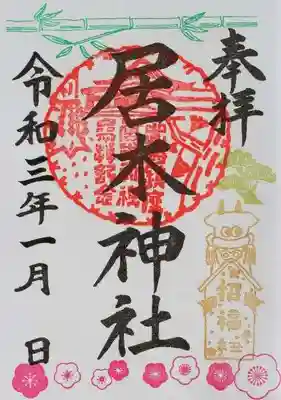 奉拝
居木神社
令和三年一月 日
招福